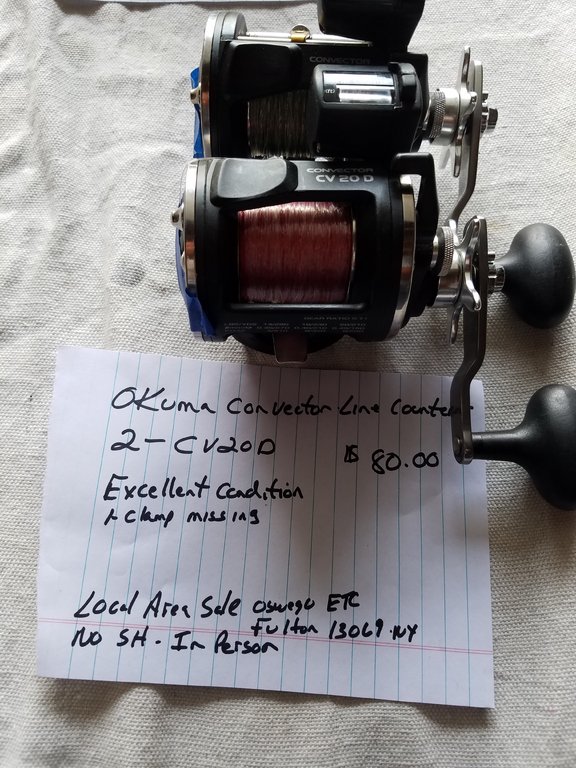 CONVECTOR
CONVECTOR
CV 20 D
GEAR RATIO
Okuma Convector Line Counter
2 - CV20D
$ 80.00
Excellent Condition
1 Clamp missing
Local Area Sale Oswego ETC
Fulton 13069 NY
No SH - In Person